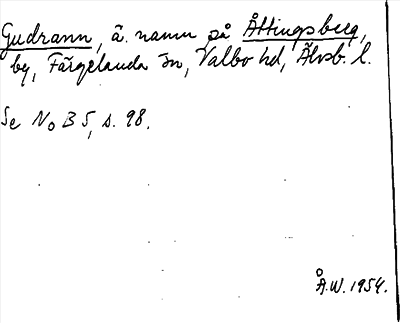 Gudrann, ä. namn på Åttingsberg,
by, Färgelanda sn, Valbo hd, Älvsb. l.
Se NoB 5, s. 98.
Å.W. 1954.